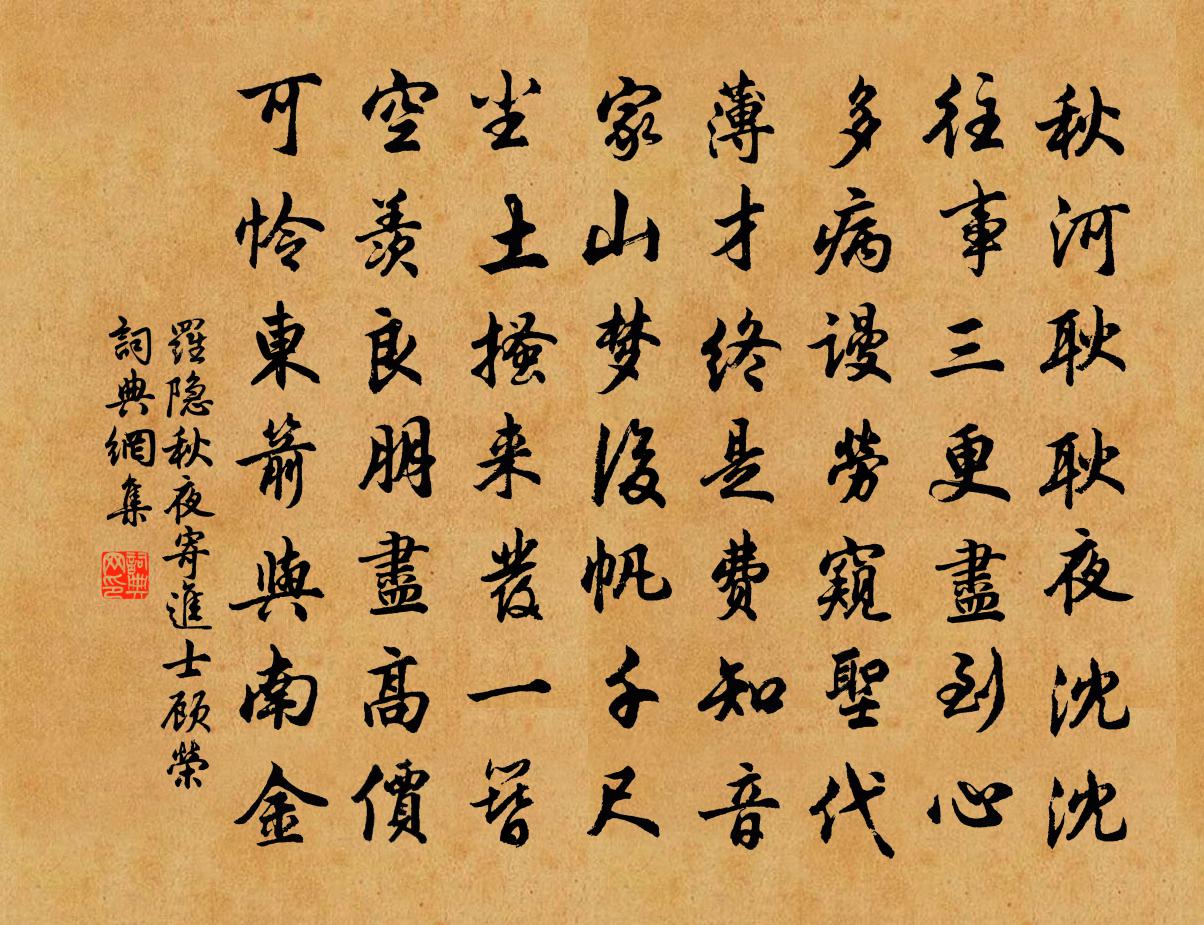 秋河耿耿夜沈沈
往事三更盡到心
多病謾勞窺聖代
薄才終是費知音
家山梦後帆千尺
尘土搔来發一簪
空羨良朋盡高價
可怜東箭與南金
羅隐秋夜寄進士顾榮
詞典網集
詞典网印